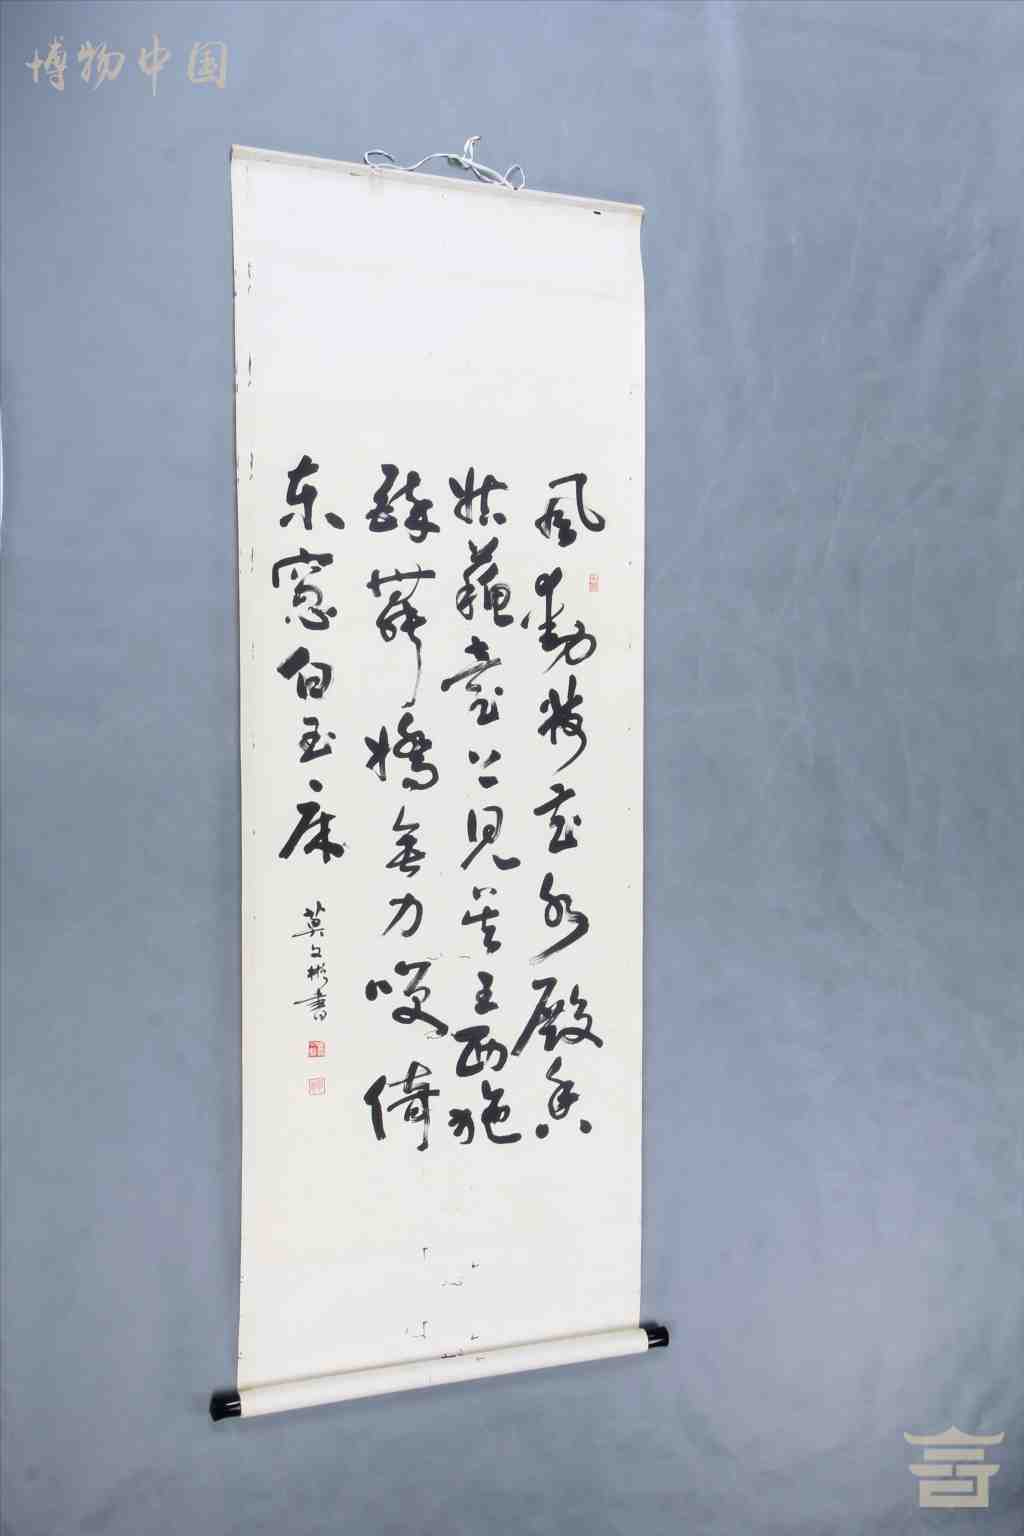 博物中国
風動荷花水殿香
姑蘇臺上見吴王西施
醉舞嬌無力咲倚
东窓白玉床
莫文彬書